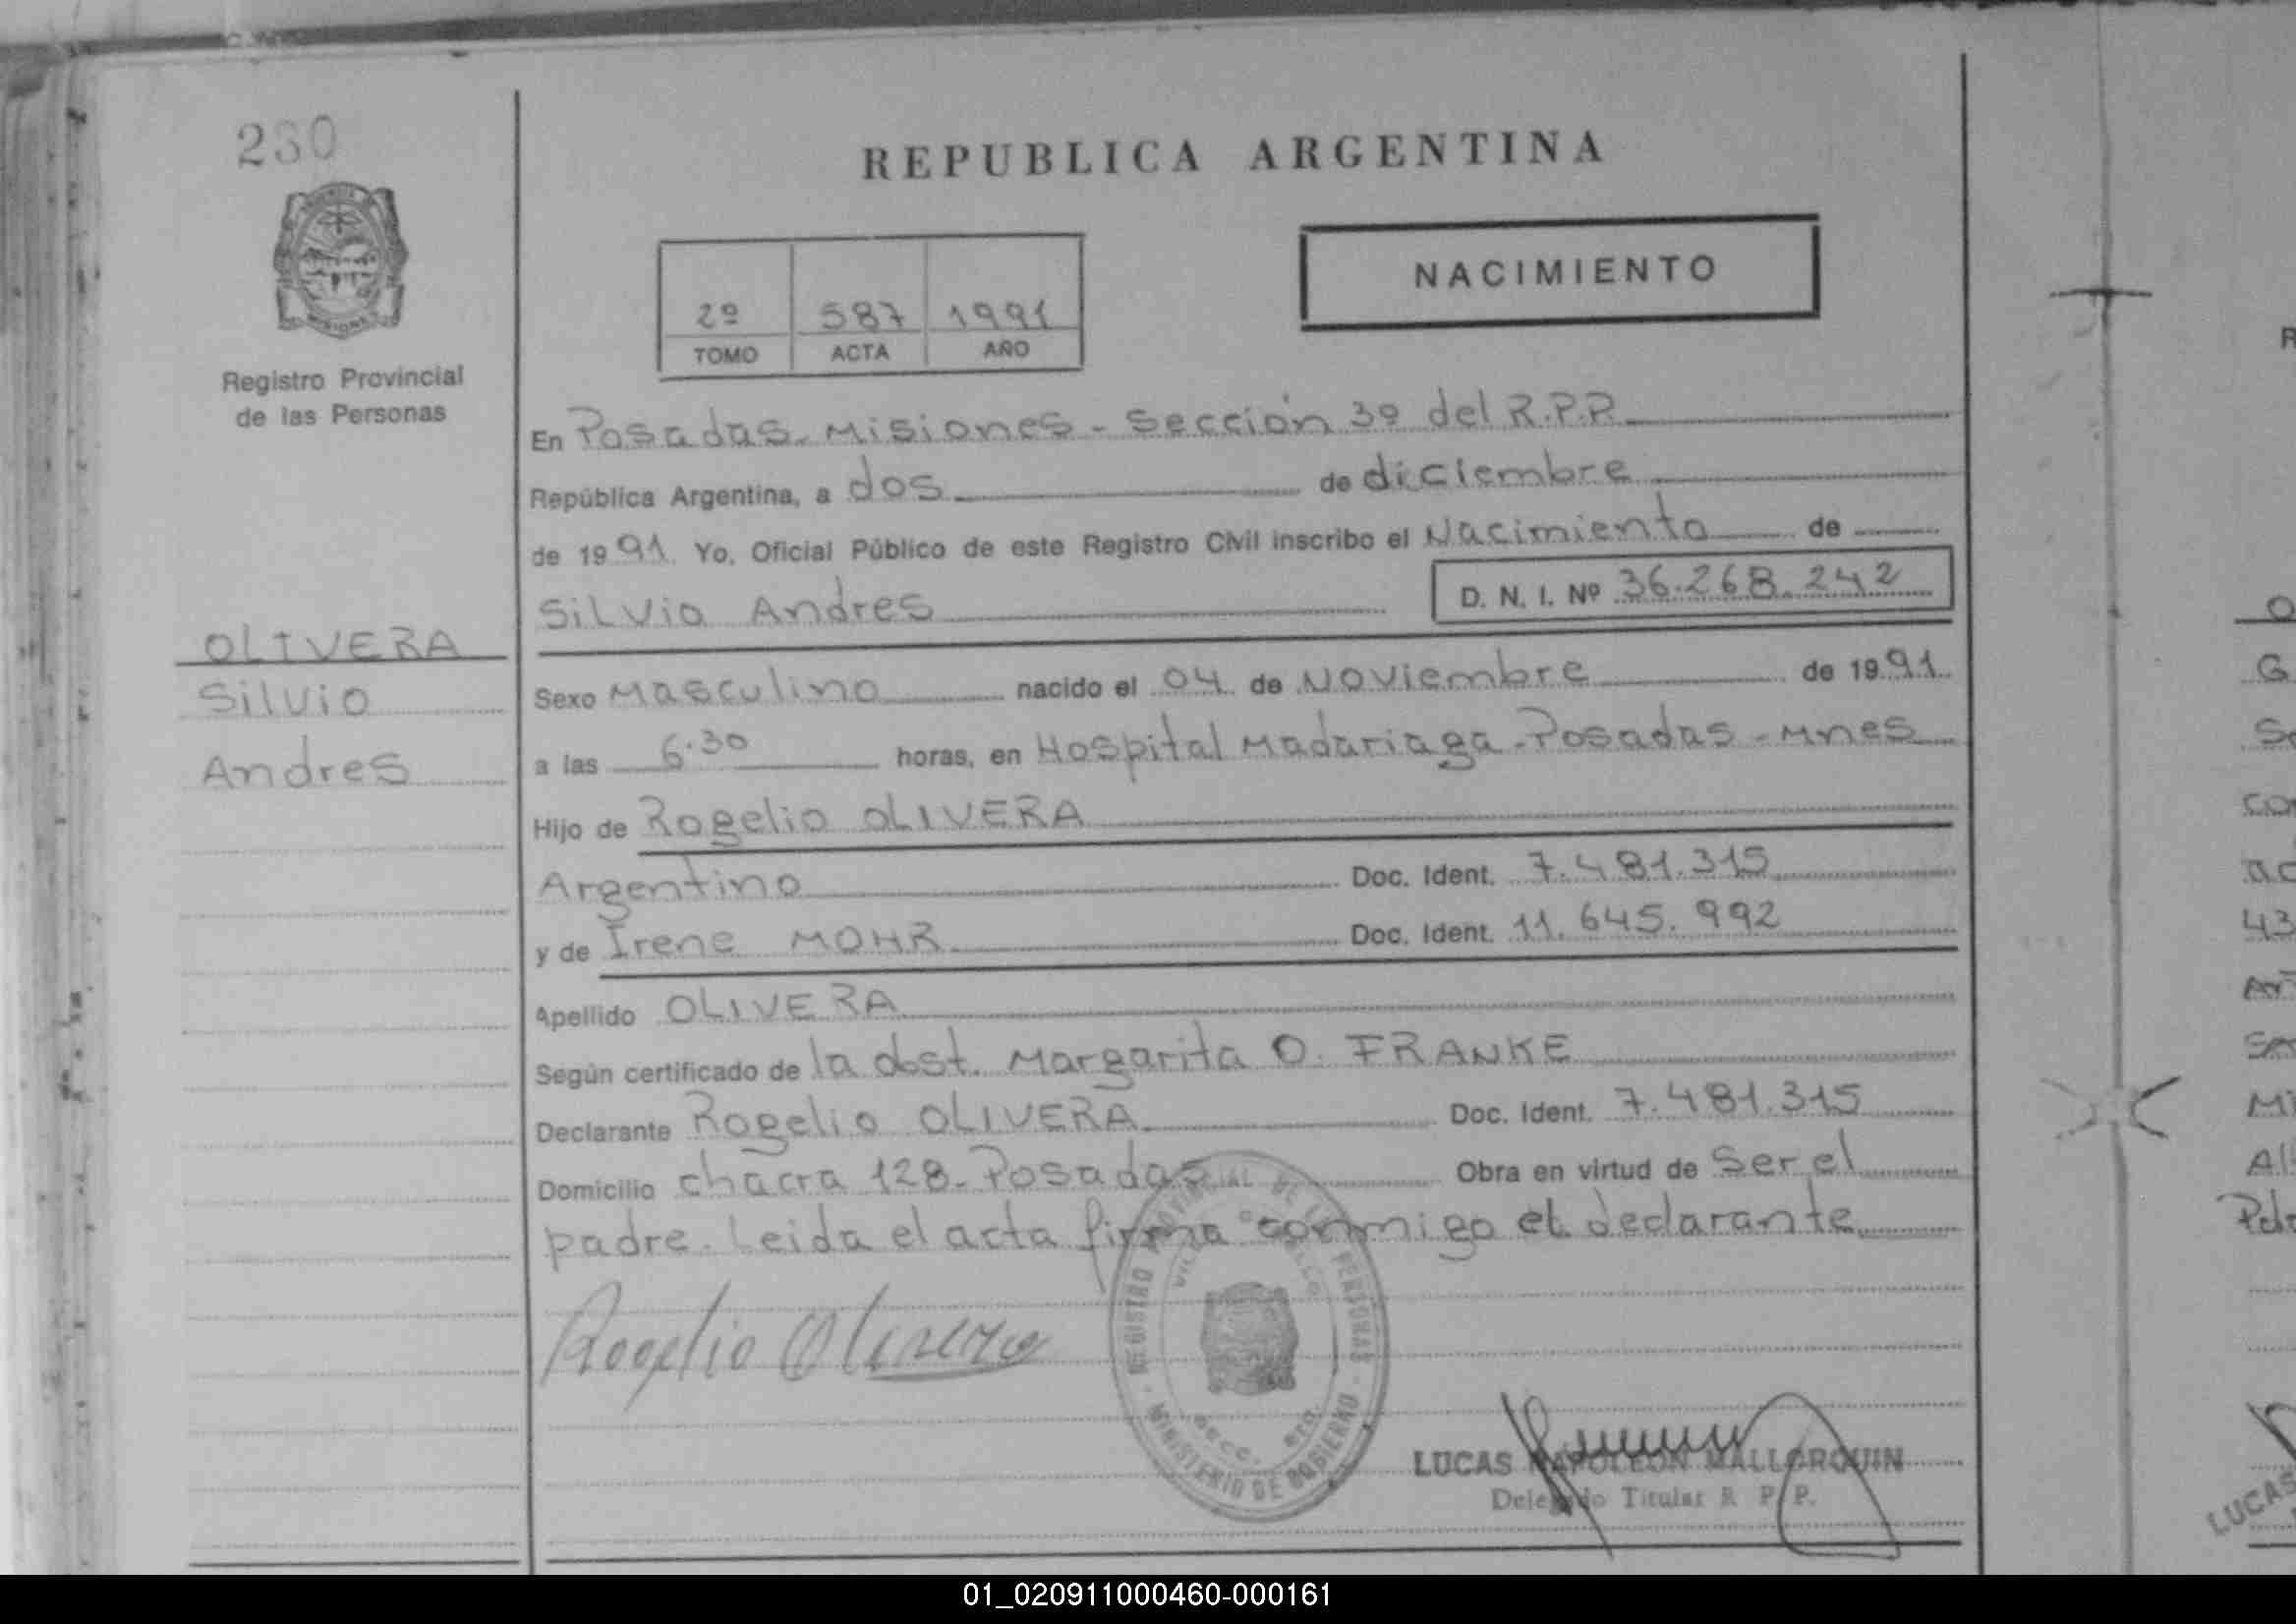 230
REPUBLICA ARGENTINA
NACIMIENTO
2º 587 1991
TOMO ACTA AÑO
Registro Provincial
de las Personas
En Posadas - Misiones - Sección 3º del R.P.P.
República Argentina, a dos de diciembre
de 1991. Yo, Oficial Público de este Registro Civil inscribo el Nacimiento de
Silvio Andres D. N. I. Nº 36.268.242
OLIVERA
Silvio
Andres
Sexo Masculino nacido el 04 de Noviembre de 1991.
a las 6.30 horas, en Hospital Madariaga - Posadas - Mnes
Hijo de Rogelio OLIVERA
Argentino Doc. Ident. 7.481.315
y de Irene MOHR Doc. Ident. 11.645.992
Apellido OLIVERA
Según certificado de la obst. Margarita O. FRANKE
Declarante Rogelio OLIVERA Doc. Ident. 7.481.315
Domicilio chacra 128 - Posadas Obra en virtud de Ser el
padre. Leida el acta firma conmigo el declarante
Rogelio Olivera
REGISTRO PROVINCIAL DE LAS PERSONAS
MINISTERIO DE GOBIERNO
LUCAS NAPOLEON MALLORQUIN
Delegado Titular R. P. P.
LUCAS
01_020911000460-000161